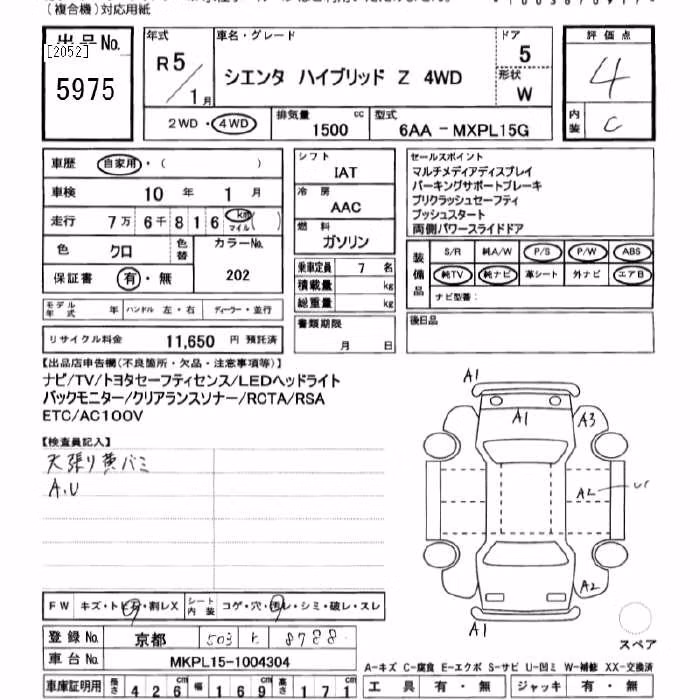 (複合機)対応用紙
出品No. [2052] 5975
年式 R5/1月
車名・グレード シエンタ ハイブリッド Z 4WD
ドア 5
形状 W
評価点 4
内装 C
2WD・4WD
排気量 1500 cc
型式 6AA-MXPL15G
車歴 自家用・( )
車検 10年 1月
走行 7万6千816 km マイル( )
色 クロ
色替
カラーNo. 202
保証書 有・無
モデル年式 年
ハンドル 左・右
ディーラー・並行
リサイクル料金 11,650 円 預託済
シフト IAT
冷房 AAC
燃料 ガソリン
乗車定員 7 名
積載量 kg
総重量 kg
書類期限 月 日
セールスポイント
マルチメディアディスプレイ
パーキングサポートブレーキ
プリクラッシュセーフティ
プッシュスタート
両側パワースライドドア
装備品 S/R 純A/W P/S P/W ABS
純TV 純ナビ 革シート 外ナビ エアB
ナビ型番:
後日品
【出品店申告欄(不良箇所・欠品・注意事項等)】
ナビ/TV/トヨタセーフティセンス/LEDヘッドライト
バックモニター/クリアランスソナー/RCTA/RSA
ETC/AC100V
【検査員記入】
天張り黄バミ
A.U
A1
A1
A3
A2
A2
A1
スペア
FW キズ・トビ石・割レX
シート内装 コゲ・穴・汚レ・シミ・破レ・スレ
登録No. 京都 503 8788
車台No. MKPL15-1004304
車庫証明用 長さ 426cm 幅 169cm 高さ 171
A-キズ C-腐食 E-エクボ S-サビ U-凹ミ W-補修 XX-交換済
工具 有・無 ジャッキ 有・無